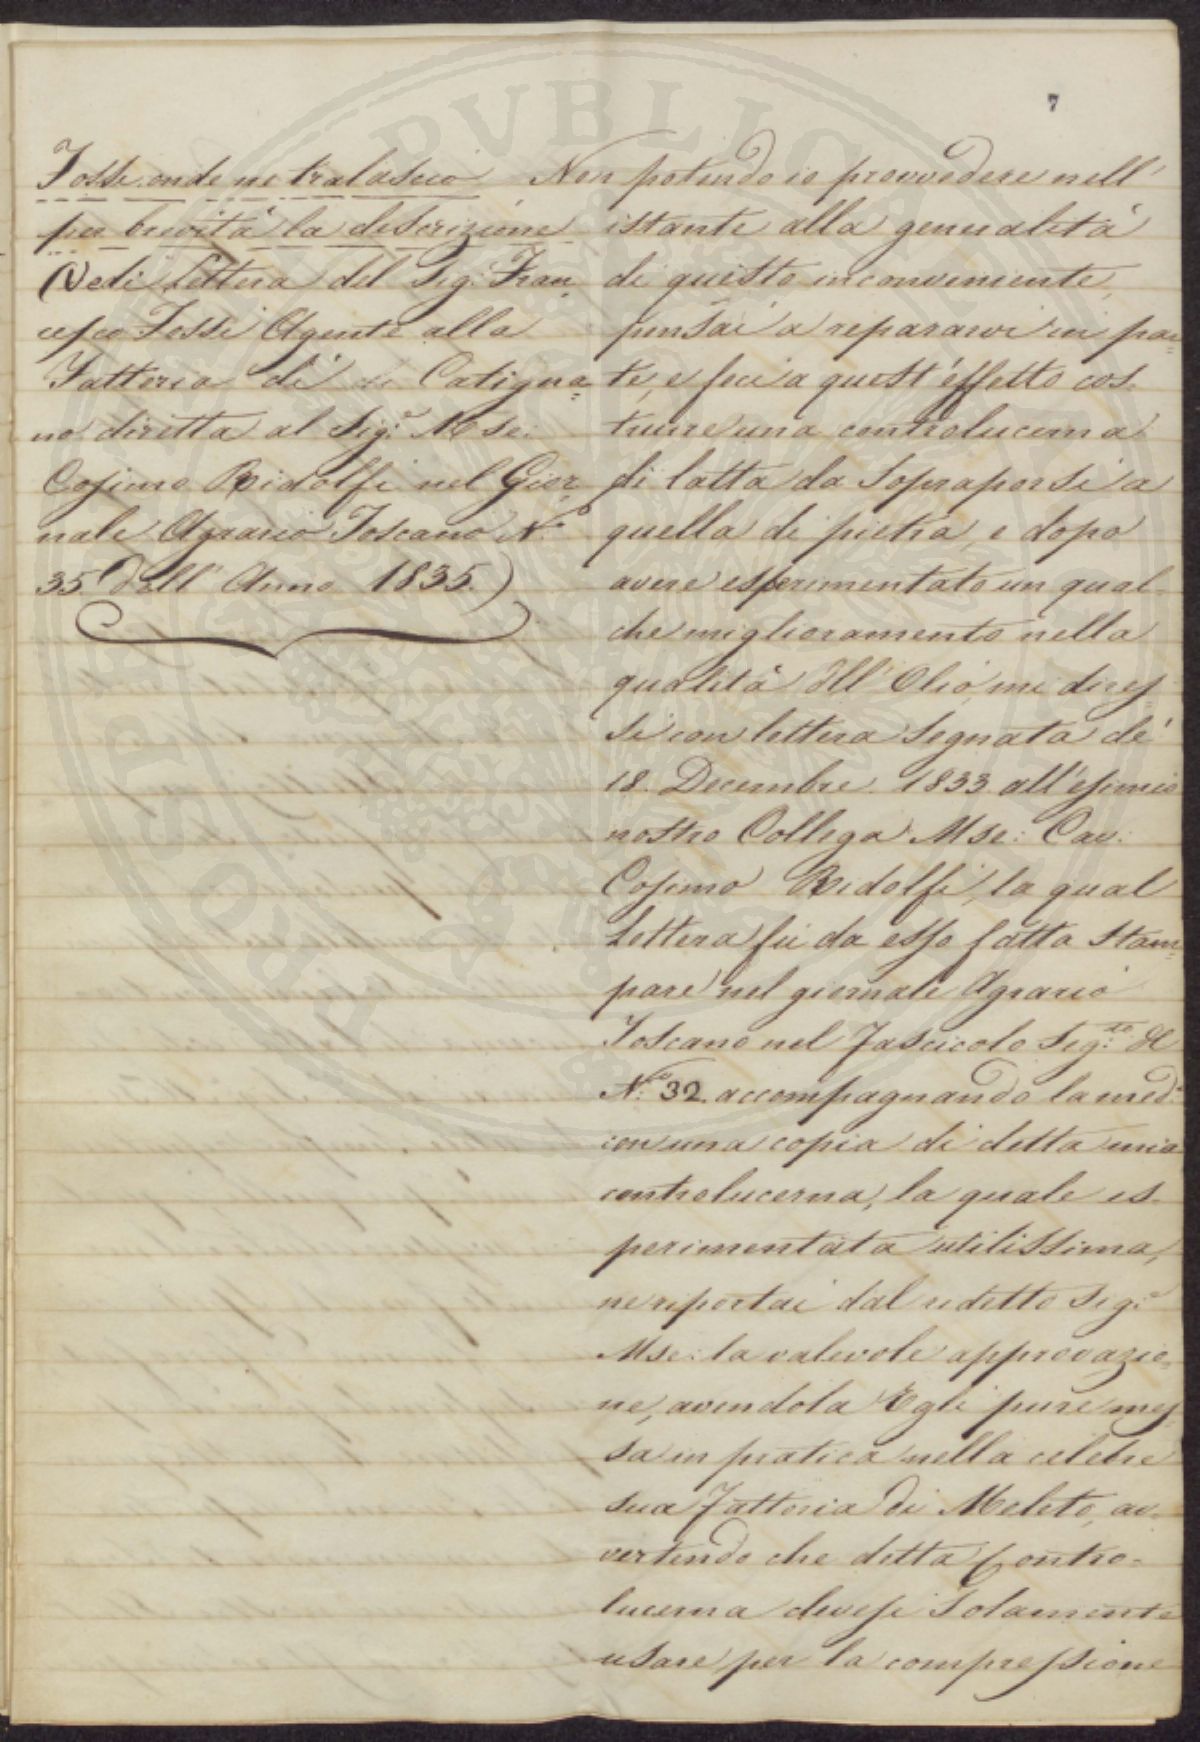 7
Fossi: onde ne tralascio
per brevità la descrizione
(Vedi Lettera del Sig: Fran=
cesco Fossi Agente alla
Fattoria di Catigna=
no diretta al Sig.e Mse:
Cosimo Ridolfi nel Gior=
nale Agrario Toscano N.o
35 dell' Anno 1835.)
Non potendo io provvedere nell'
istante alla generalità
di questo inconveniente,
pensai a repararvi in par=
te, e feci a quest'effetto cos=
truire una controlucerna
di latta da Sopraporsi a
quella di pietra, e dopo
avere esperimentato un qual=
che miglioramento nella
qualità dell' Olio, mi dires=
si con lettera Segnata de'
18. Decembre. 1833. all'esimio
nostro Collega Mse: Cav:
Cosimo Ridolfi, la qual
Lettera fù da esso fatta Stam=
pare nel giornale Agrario
Toscano nel Fascicolo Seg:to di
N.o 32. accompagnando la med:a
con una copia di detta mia
controlucerna, la quale es=
perimentata utilissima,
ne riportai dal redetto Sig:e
Mse: la valevole approvazio=
ne, avendola Egli pure mes=
sa in pratica nella celebre
sua Fattoria di Meleto, av=
vertendo che detta Contro=
lucerna devesi Solamente
usare per la compressione
PVBLICAE